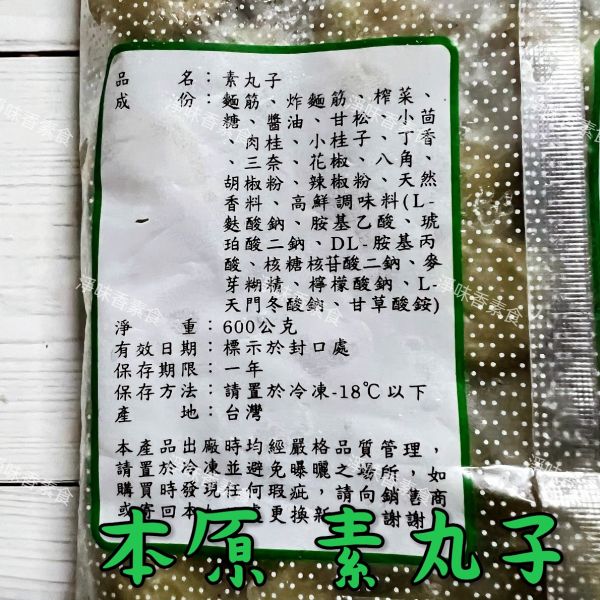 品名：素丸子
成份：麵筋、炸麵筋、榨菜、
糖、醬油、甘松、小茴
、肉桂、小桂子、丁香
、三奈、花椒、八角、
胡椒粉、辣椒粉、天然
香料、高鮮調味料(L-
麩酸鈉、胺基乙酸、琥
珀酸二鈉、DL-胺基丙
酸、核糖核苷酸二鈉、麥
芽糊精、檸檬酸鈉、L-
天門冬酸鈉、甘草酸銨)
淨重：600公克
有效日期：標示於封口處
保存期限：一年
保存方法：請置於冷凍-18℃以下
產地：台灣
本產品出廠時均經嚴格品質管理，
請置於冷凍並避免曝曬之場所，如
購買時發現任何瑕疵，請向銷售商
或寄回本 更換新 謝謝
本原 素丸子
淨味香素食